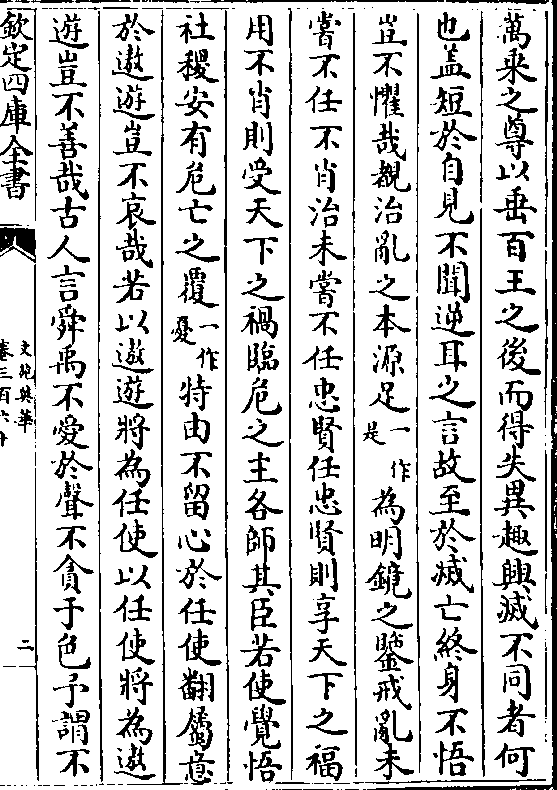 萬乘之尊以垂百王之後而得失異趣興滅不同者何
也盖短於自見不聞逆耳之言故至於滅亡終身不悟
豈不懼哉覩治亂之本源足一作是為明鏡之鑒戒亂未
嘗不任不肖治未嘗不任忠賢任忠賢則享天下之福
用不肖則受天下之禍臨危之主各師其臣若使覺悟
社稷安有危亡之覆一作憂特由不留心於任使翻屬意
於遨遊豈不哀哉若以遨遊將為任使以任使將為遨
遊豈不善哉古人言舜禹不愛於聲不貪于色予謂不
欽定四庫全書
文苑英華
卷三百六十
二